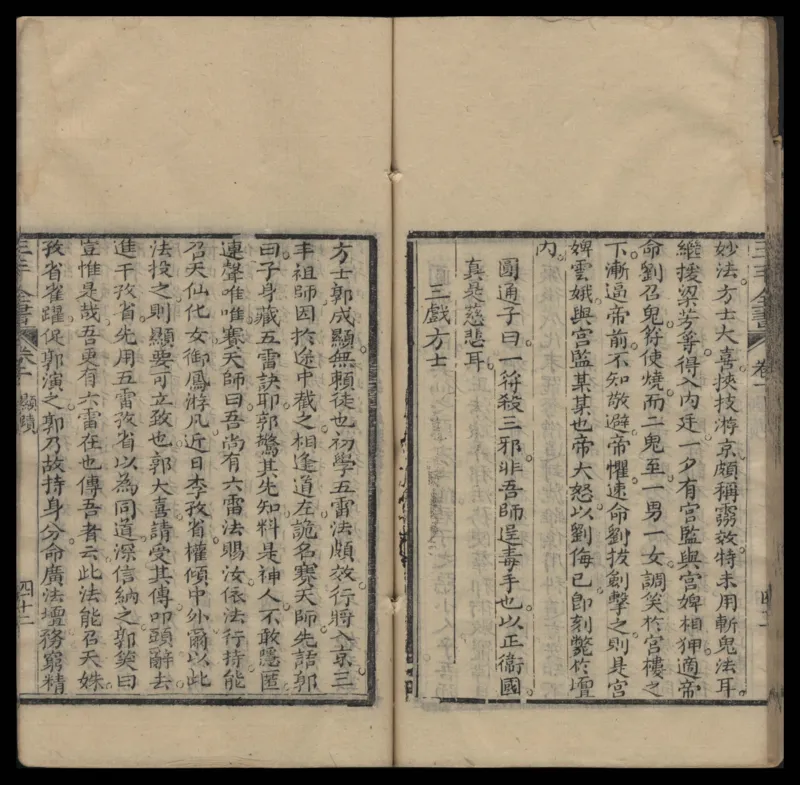 三丰全書 卷一
妙法方士大喜挾技游京頗稱霛效特未用斬鬼法耳
繼援梁芳等得入內廷一夕有宮監與宮婢相狎適帝
命劉召鬼符使燒而二鬼至一男一女調笑於宮樓之
下漸逼帝前不知敬避帝懼速命劉拔劍擊之則具宮
婢雲娥與宮監某某也帝大怒以劉侮已即刻斃於壇
內
圓通子曰一符殺三邪非吾師逞毒手也以正衞國
真是慈悲耳
三戲方士
方士郭成顯無賴徒也初學五雷法頗效行將入京三
丰祖師因於途中截之相逢道左詭名賽天師先語郭
曰子身藏五雷訣耶郭驚其先知料是神人不敢隱匿
連聲唯唯賽天師曰吾尚有六雷法賜汝依法行持能
召天仙化女御風游凡近日李孜省權傾中外爾以此
法投之則顯要可立致也郭大喜請受其傳叩頭辭去
進干孜省先用五雷孜省以為同道深信納之郭笑曰
豈惟是哉吾更有六雷在也傳吾者云此法能召天姝
孜省雀躍促郭演之郭乃故持身分命廣法壇務窮精
三丰全書 卷一 顯蹟 四十二